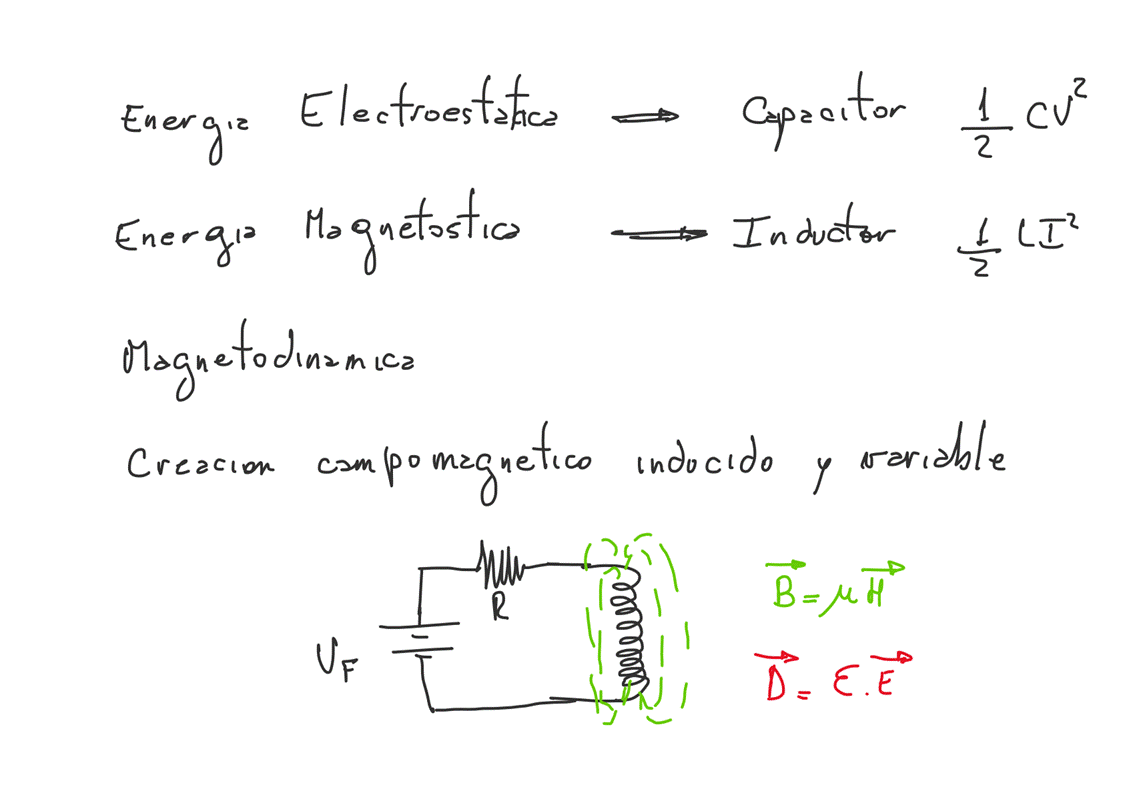 Energia Electroestatica → Capacitor 1/2 CV²
Energia Magnetostica → Inductor 1/2 LI²
Magnetodinamica
Creacion campo magnetico inducido y variable
R
B⃗ = μ H⃗
V_F
D⃗ = ε . E⃗